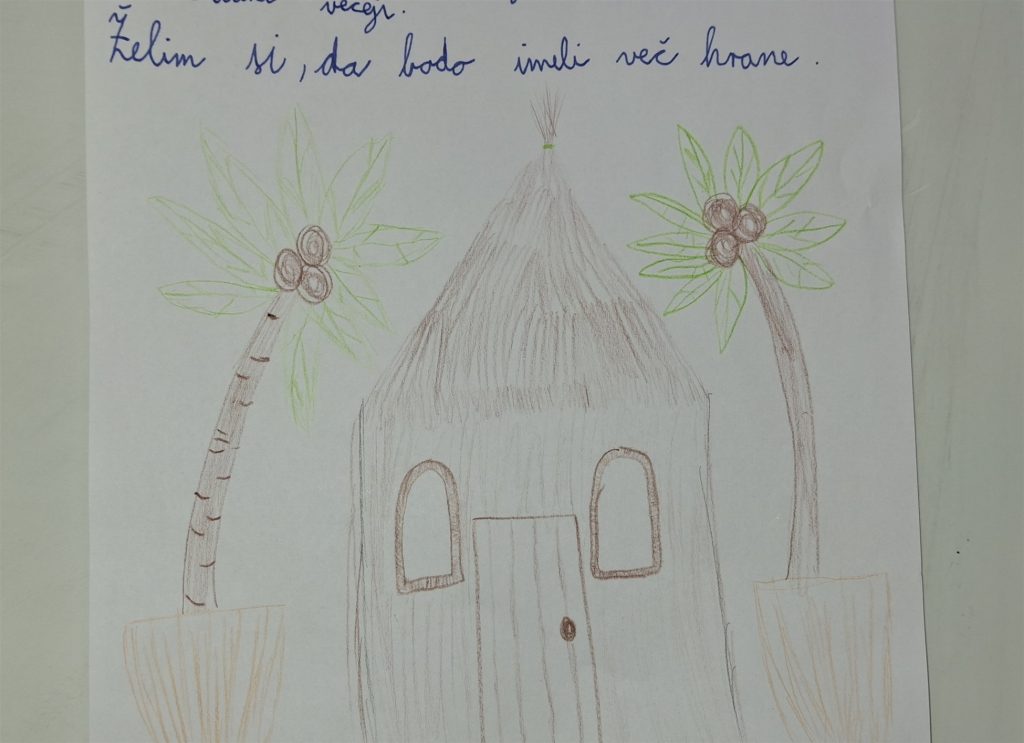 večji.
Želim si, da bodo imeli več hrane.